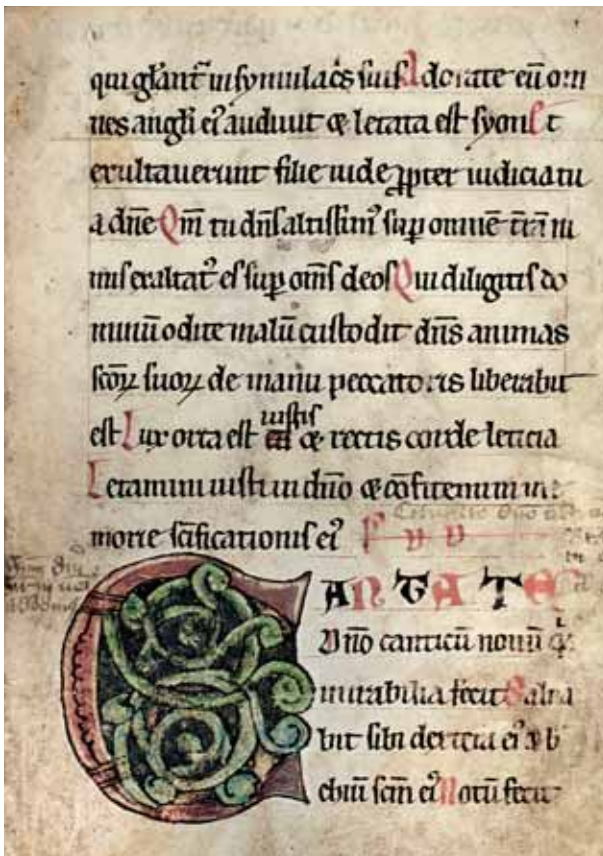 qui gl̄ant᷑ in symulac̄s suis Adorate eū om
nes angli ei᷒ audivit ⁊ letata est syon Et
exultaverunt filie iude ꝓpter iudicia tu
a dn̄e Qm̄ tu dn̄s altissim᷒ sup omnē t̄rā ni
mis exaltat᷒ es sup om̄s deos Qui diligitis do
minū odite malū custodit dn̄s animas
sc̄oꝝ suoꝝ de manu peccatoris liberabit
est Lux orta est iustis ⁊ rectis corde leticia
Letamini iusti in dn̄o ⁊ cōfitemini me
morie sc̄ificationis ei᷒
CANTATE
Dn̄o canticū novū q
mirabilia fecit Salva
bit sibi dextera ei᷒ ⁊ b
chiū sc̄m ei᷒ Notū fecit